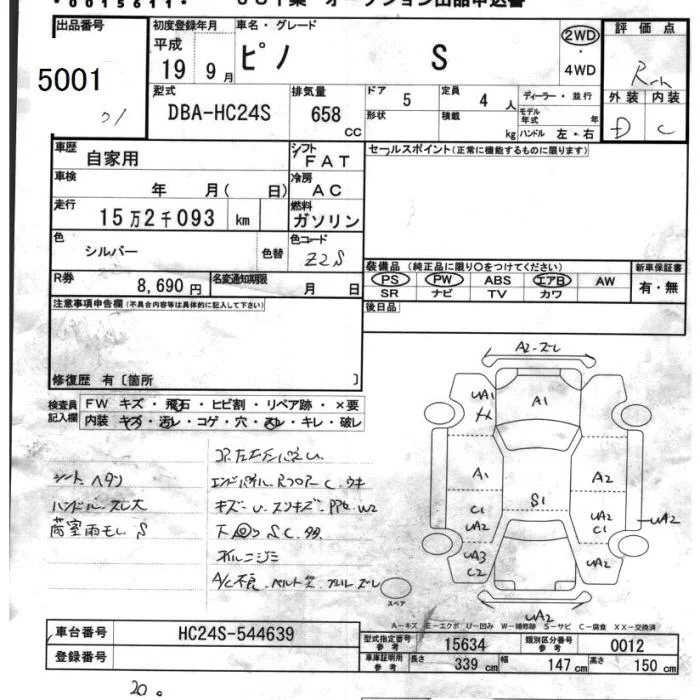 出品番号
初度登録年月
車名・グレード
評価点
5001
平成
19 9月
ピノ
S
2WD
・
4WD
外装 内装
D C
型式
DBA-HC24S
排気量
658
CC
ドア
5
定員
4 人
ディーラー・並行
形状
積載
kg
モデル年式 年
ハンドル 左・右
車歴
自家用
シフト
FAT
セールスポイント(正常に機能するものに限ります)
車検
年 月( 日)
冷房
AC
走行
15万2千093 km
燃料
ガソリン
色
シルバー
色替
色コード
Z2S
装備品(純正品に限り○をつけてください)
新車保証書
PS PW ABS エアB AW
SR ナビ TV カワ
有・無
R券
8,690円
名変通知期限
月 日
後日品
注意事項申告欄(不具合内容等は具体的に記入して下さい)
修復歴 有〔箇所 〕
検査員
記入欄
FW キズ・飛石・ヒビ割・リペア跡・×要
内装 キズ・汚レ・コゲ・穴・スレ・キレ・破レ
シート ヘタリ
ハンドル スレ大
荷室雨モレ S
オイルニジミ
A/C不良
A2
A1
UA1
A1
A2
S1
C1
UA2
UA2
C1
UA2
UA3
C2
UA2
UA2
スペア
A－キズ E－エクボ U－凹み W－補修跡 S－サビ C－腐食 XX－交換済
車台番号
HC24S-544639
登録番号
型式指定番号
参考
15634
類別区分番号
参考
0012
車庫証明用
参考
長さ 339 cm
幅 147 cm
高さ 150 cm
20。